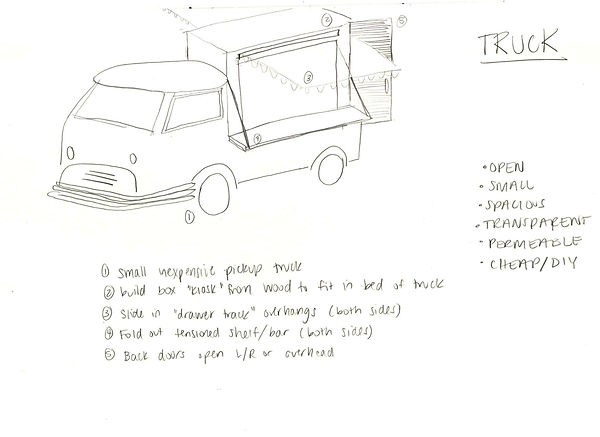 TRUCK
② ⑤
③
④
①
• OPEN
• SMALL
• SPACIOUS
• TRANSPARENT
• PERMEABLE
• CHEAP/DIY
① Small inexpensive pickup truck
② build box "kiosk" from wood to fit in bed of truck
③ Slide in "drawer track" overhangs (both sides)
④ Fold out tensioned shelf/bar (both sides)
⑤ Back doors open L/R or overhead